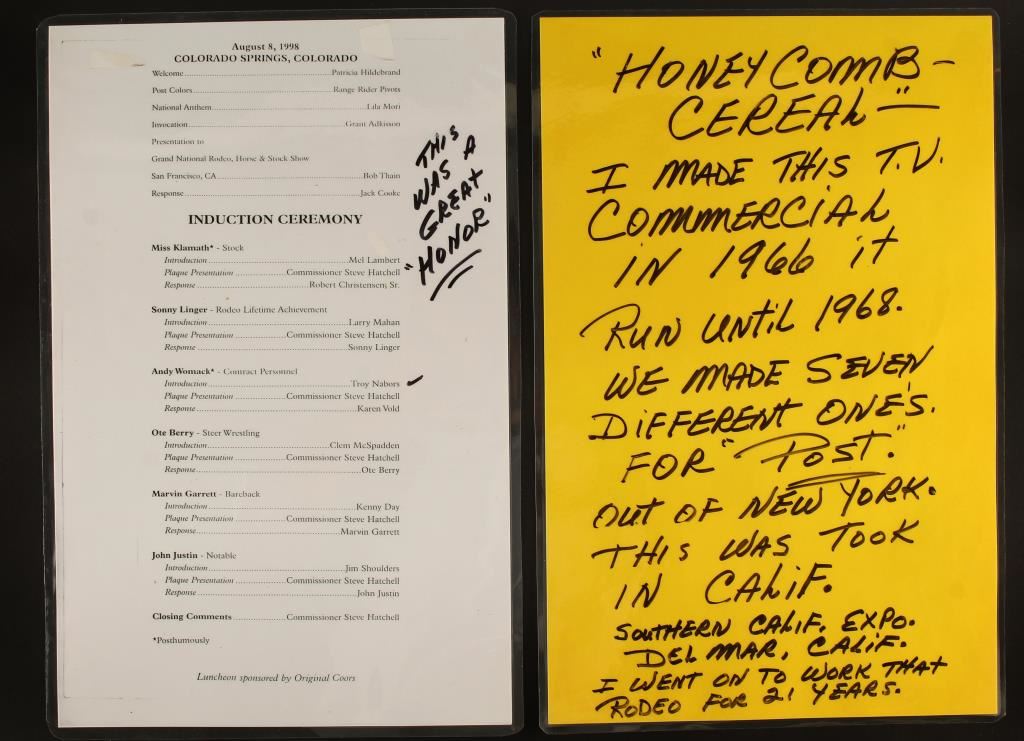 August 8, 1998
COLORADO SPRINGS, COLORADO
Welcome Patricia Hildebrand
Post Colors Range Rider Pivots
National Anthem Lila Mori
Invocation Grant Adkisson
Presentation to
Grand National Rodeo, Horse & Stock Show
San Francisco, CA Bob Thain
Response Jack Cooke
INDUCTION CEREMONY
Miss Klamath* - Stock
Introduction Mel Lambert
Plaque Presentation Commissioner Steve Hatchell
Response Robert Christensen, Sr.
Sonny Linger - Rodeo Lifetime Achievement
Introduction Larry Mahan
Plaque Presentation Commissioner Steve Hatchell
Response Sonny Linger
Andy Womack* - Contract Personnel
Introduction Troy Nabors
Plaque Presentation Commissioner Steve Hatchell
Response Karen Vold
Ote Berry - Steer Wrestling
Introduction Clem McSpadden
Plaque Presentation Commissioner Steve Hatchell
Response Ote Berry
Marvin Garrett - Bareback
Introduction Kenny Day
Plaque Presentation Commissioner Steve Hatchell
Response Marvin Garrett
John Justin - Notable
Introduction Jim Shoulders
Plaque Presentation Commissioner Steve Hatchell
Response John Justin
Closing Comments Commissioner Steve Hatchell
*Posthumously
Luncheon sponsored by Original Coors
THIS
WAS A
GREAT
"HONOR"
"HONEYCOMB-
CEREAL"
I MADE THIS T.V.
COMMERCIAL
IN 1966 it
RUN UNTIL 1968.
WE MADE SEVEN
DIFFERENT ONE'S.
FOR "POST."
OUT OF NEW YORK.
THIS WAS TOOK
IN CALIF.
SOUTHERN CALIF. EXPO.
DEL MAR, CALIF.
I WENT ON TO WORK THAT
RODEO FOR 21 YEARS.